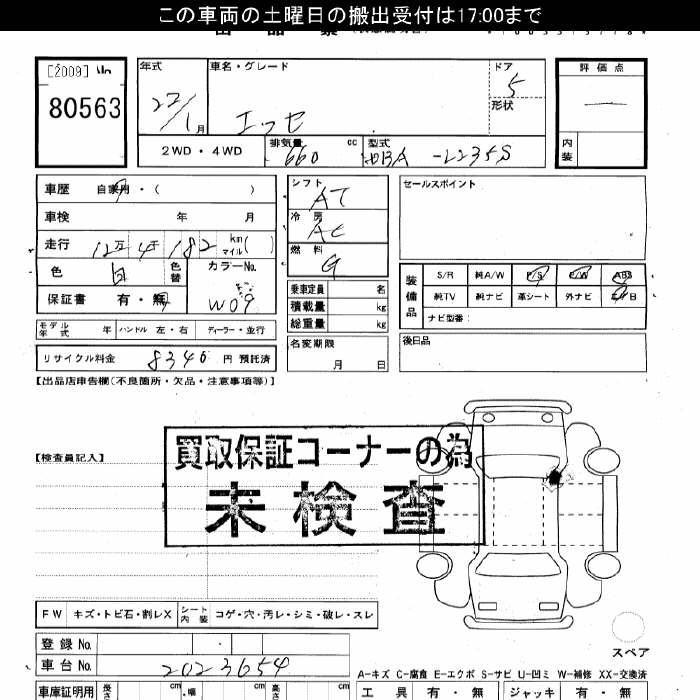 この車両の土曜日の搬出受付は17:00まで
[2009]
80563
年式 22/1月
車名・グレード エッセ
ドア 5
形状
評価点 —
内装
2WD・4WD
排気量 660 cc
型式 -L235S
車歴 自家用・( )
車検 年 月
走行 12万4千182 km マイル( )
色 白 色替
カラーNo. W09
保証書 有・無
モデル年式 年 ハンドル 左・右 ディーラー・並行
リサイクル料金 8340 円 預託済
シフト AT
冷房 AC
燃料 G
乗車定員 名
積載量 kg
総重量 kg
名変期限 月 日
セールスポイント
装備品
S/R 純A/W P/S P/W ABS
純TV 純ナビ 革シート 外ナビ
ナビ型番:
後日品
【出品店申告欄(不良箇所・欠品・注意事項等)】
【検査員記入】
買取保証コーナーの為
未検査
FW キズ・トビ石・割レX シート内装 コゲ・穴・汚レ・シミ・破レ・スレ
スペア
登録No.
車台No. 2023654
A-キズ C-腐食 E-エクボ S-サビ U-凹ミ W-補修 XX-交換済
車庫証明用 長さ cm 幅 cm 高さ cm
工具 有・無 ジャッキ 有・無